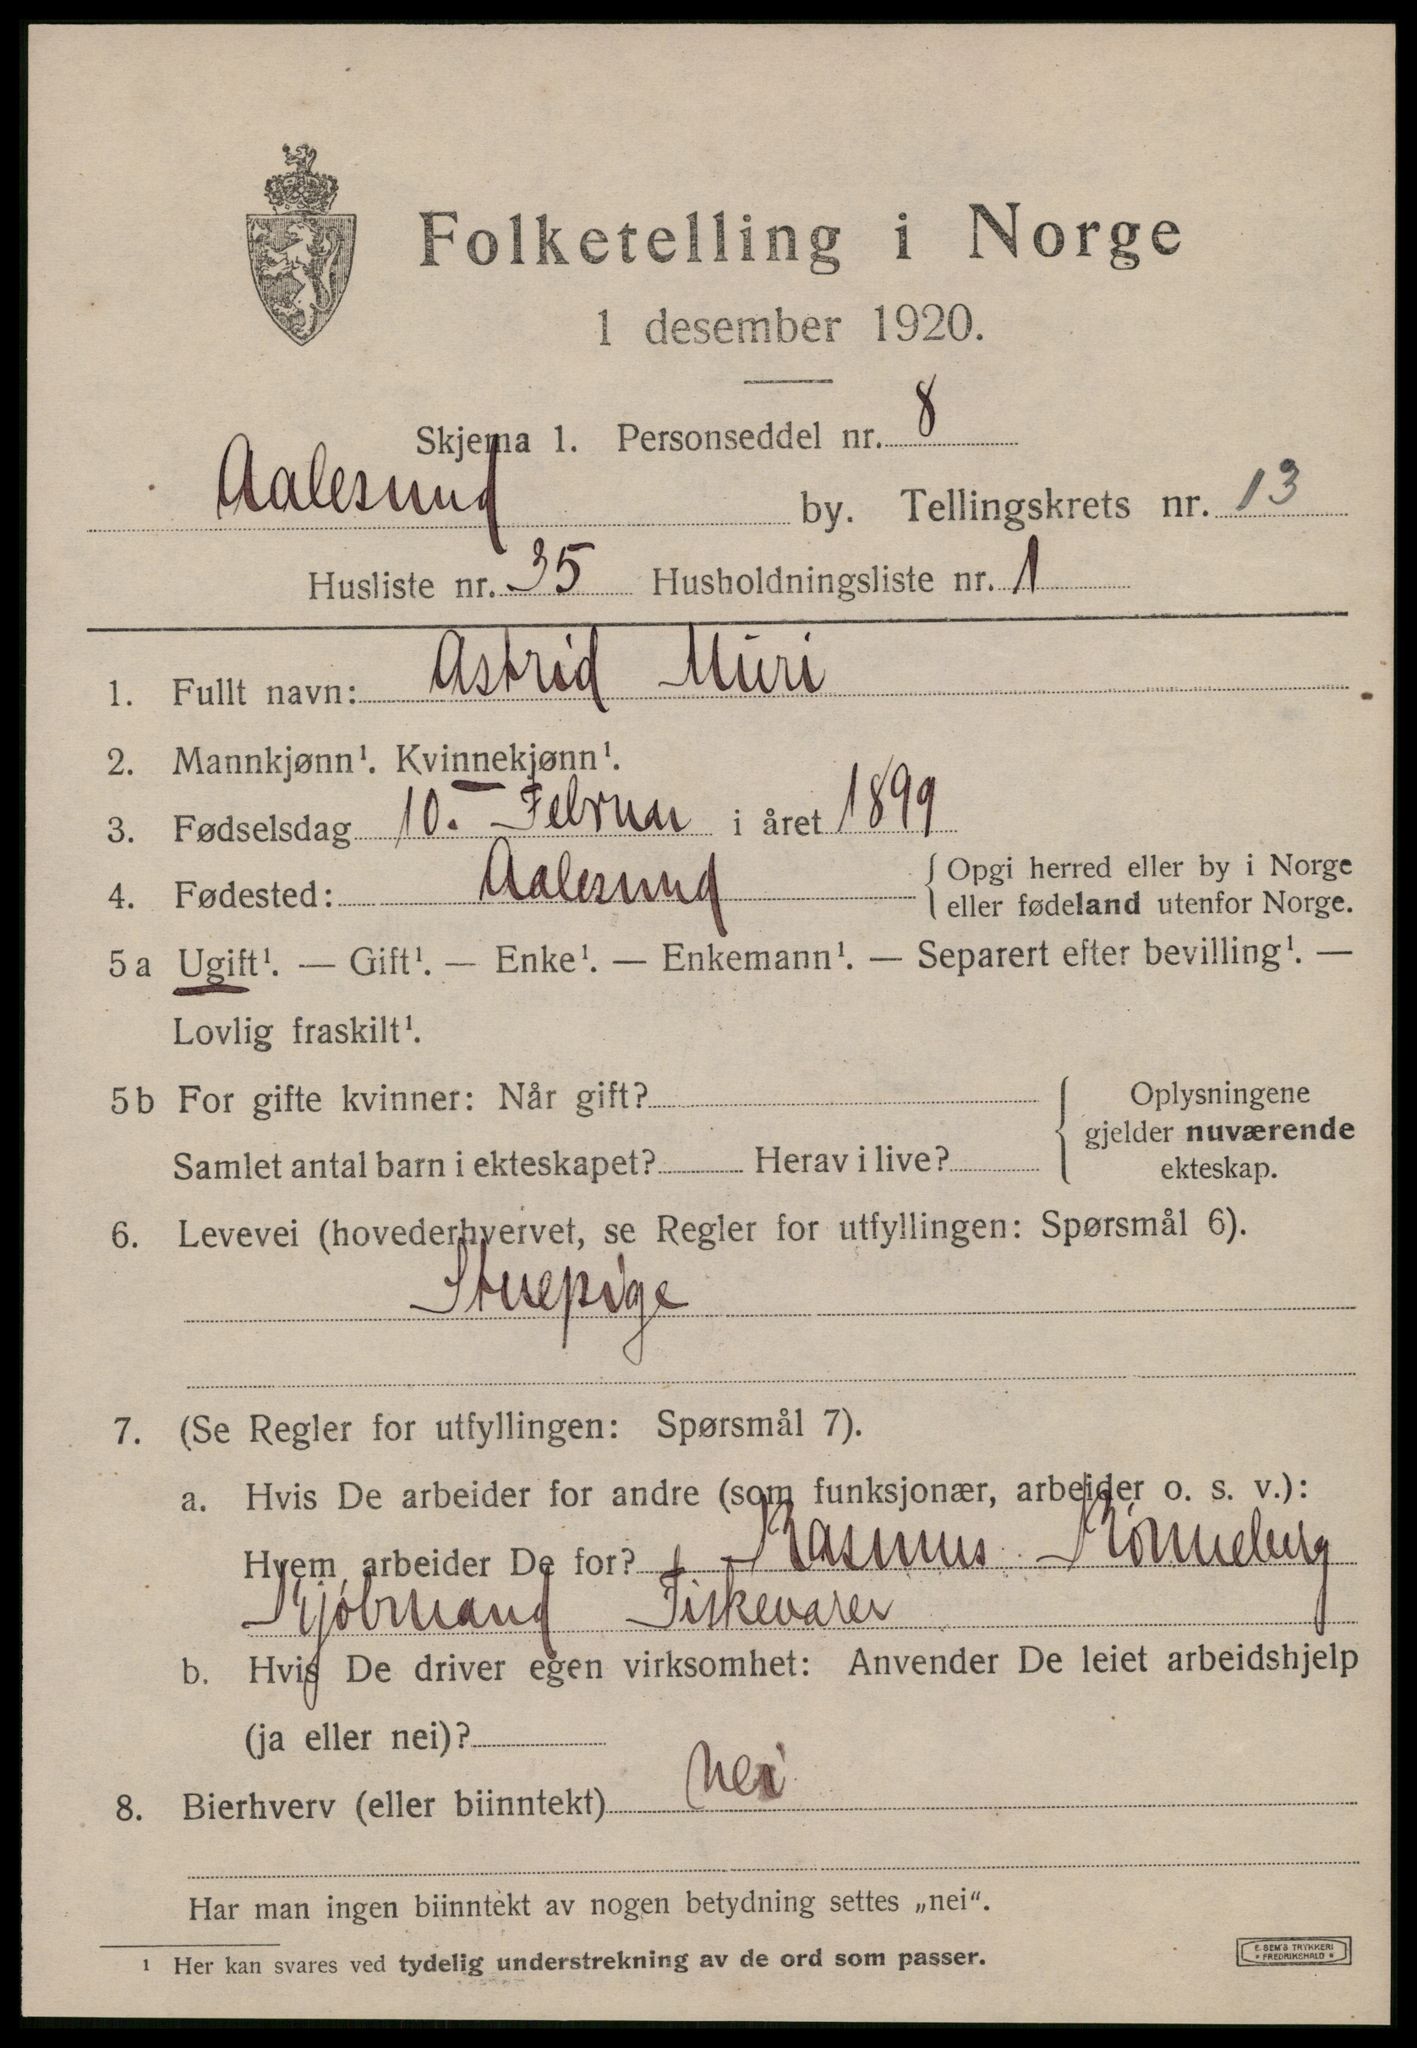 Folketelling i Norge
1 desember 1920.
Skjema 1. Personseddel nr. 8
Aalesund by. Tellingskrets nr. 13
Husliste nr. 35 Husholdningsliste nr. 1
1. Fullt navn: Astrid Muri
2. Mannkjønn¹. Kvinnekjønn¹.
3. Fødselsdag 10. Februar i året 1899
4. Fødested: Aalesund { Opgi herred eller by i Norge
eller fødeland utenfor Norge.
5a Ugift¹. — Gift¹. — Enke¹. — Enkemann¹. — Separert efter bevilling¹. —
Lovlig fraskilt¹.
5b For gifte kvinner: Når gift? { Oplysningene
gjelder nuværende
Samlet antal barn i ekteskapet? Herav i live? ekteskap.
6. Levevei (hovederhvervet, se Regler for utfyllingen: Spørsmål 6).
Stuepige
7. (Se Regler for utfyllingen: Spørsmål 7).
a. Hvis De arbeider for andre (som funksjonær, arbeider o. s. v.):
Hvem arbeider De for? Rasmus Rønneberg
Kjøbmand Fiskevarer
b. Hvis De driver egen virksomhet: Anvender De leiet arbeidshjelp
(ja eller nei)?
8. Bierhverv (eller biinntekt) Nei
Har man ingen biinntekt av nogen betydning settes „nei“.
¹ Her kan svares ved tydelig understrekning av de ord som passer.
E. SEM'S TRYKKERI
* FREDRIKSHALD *